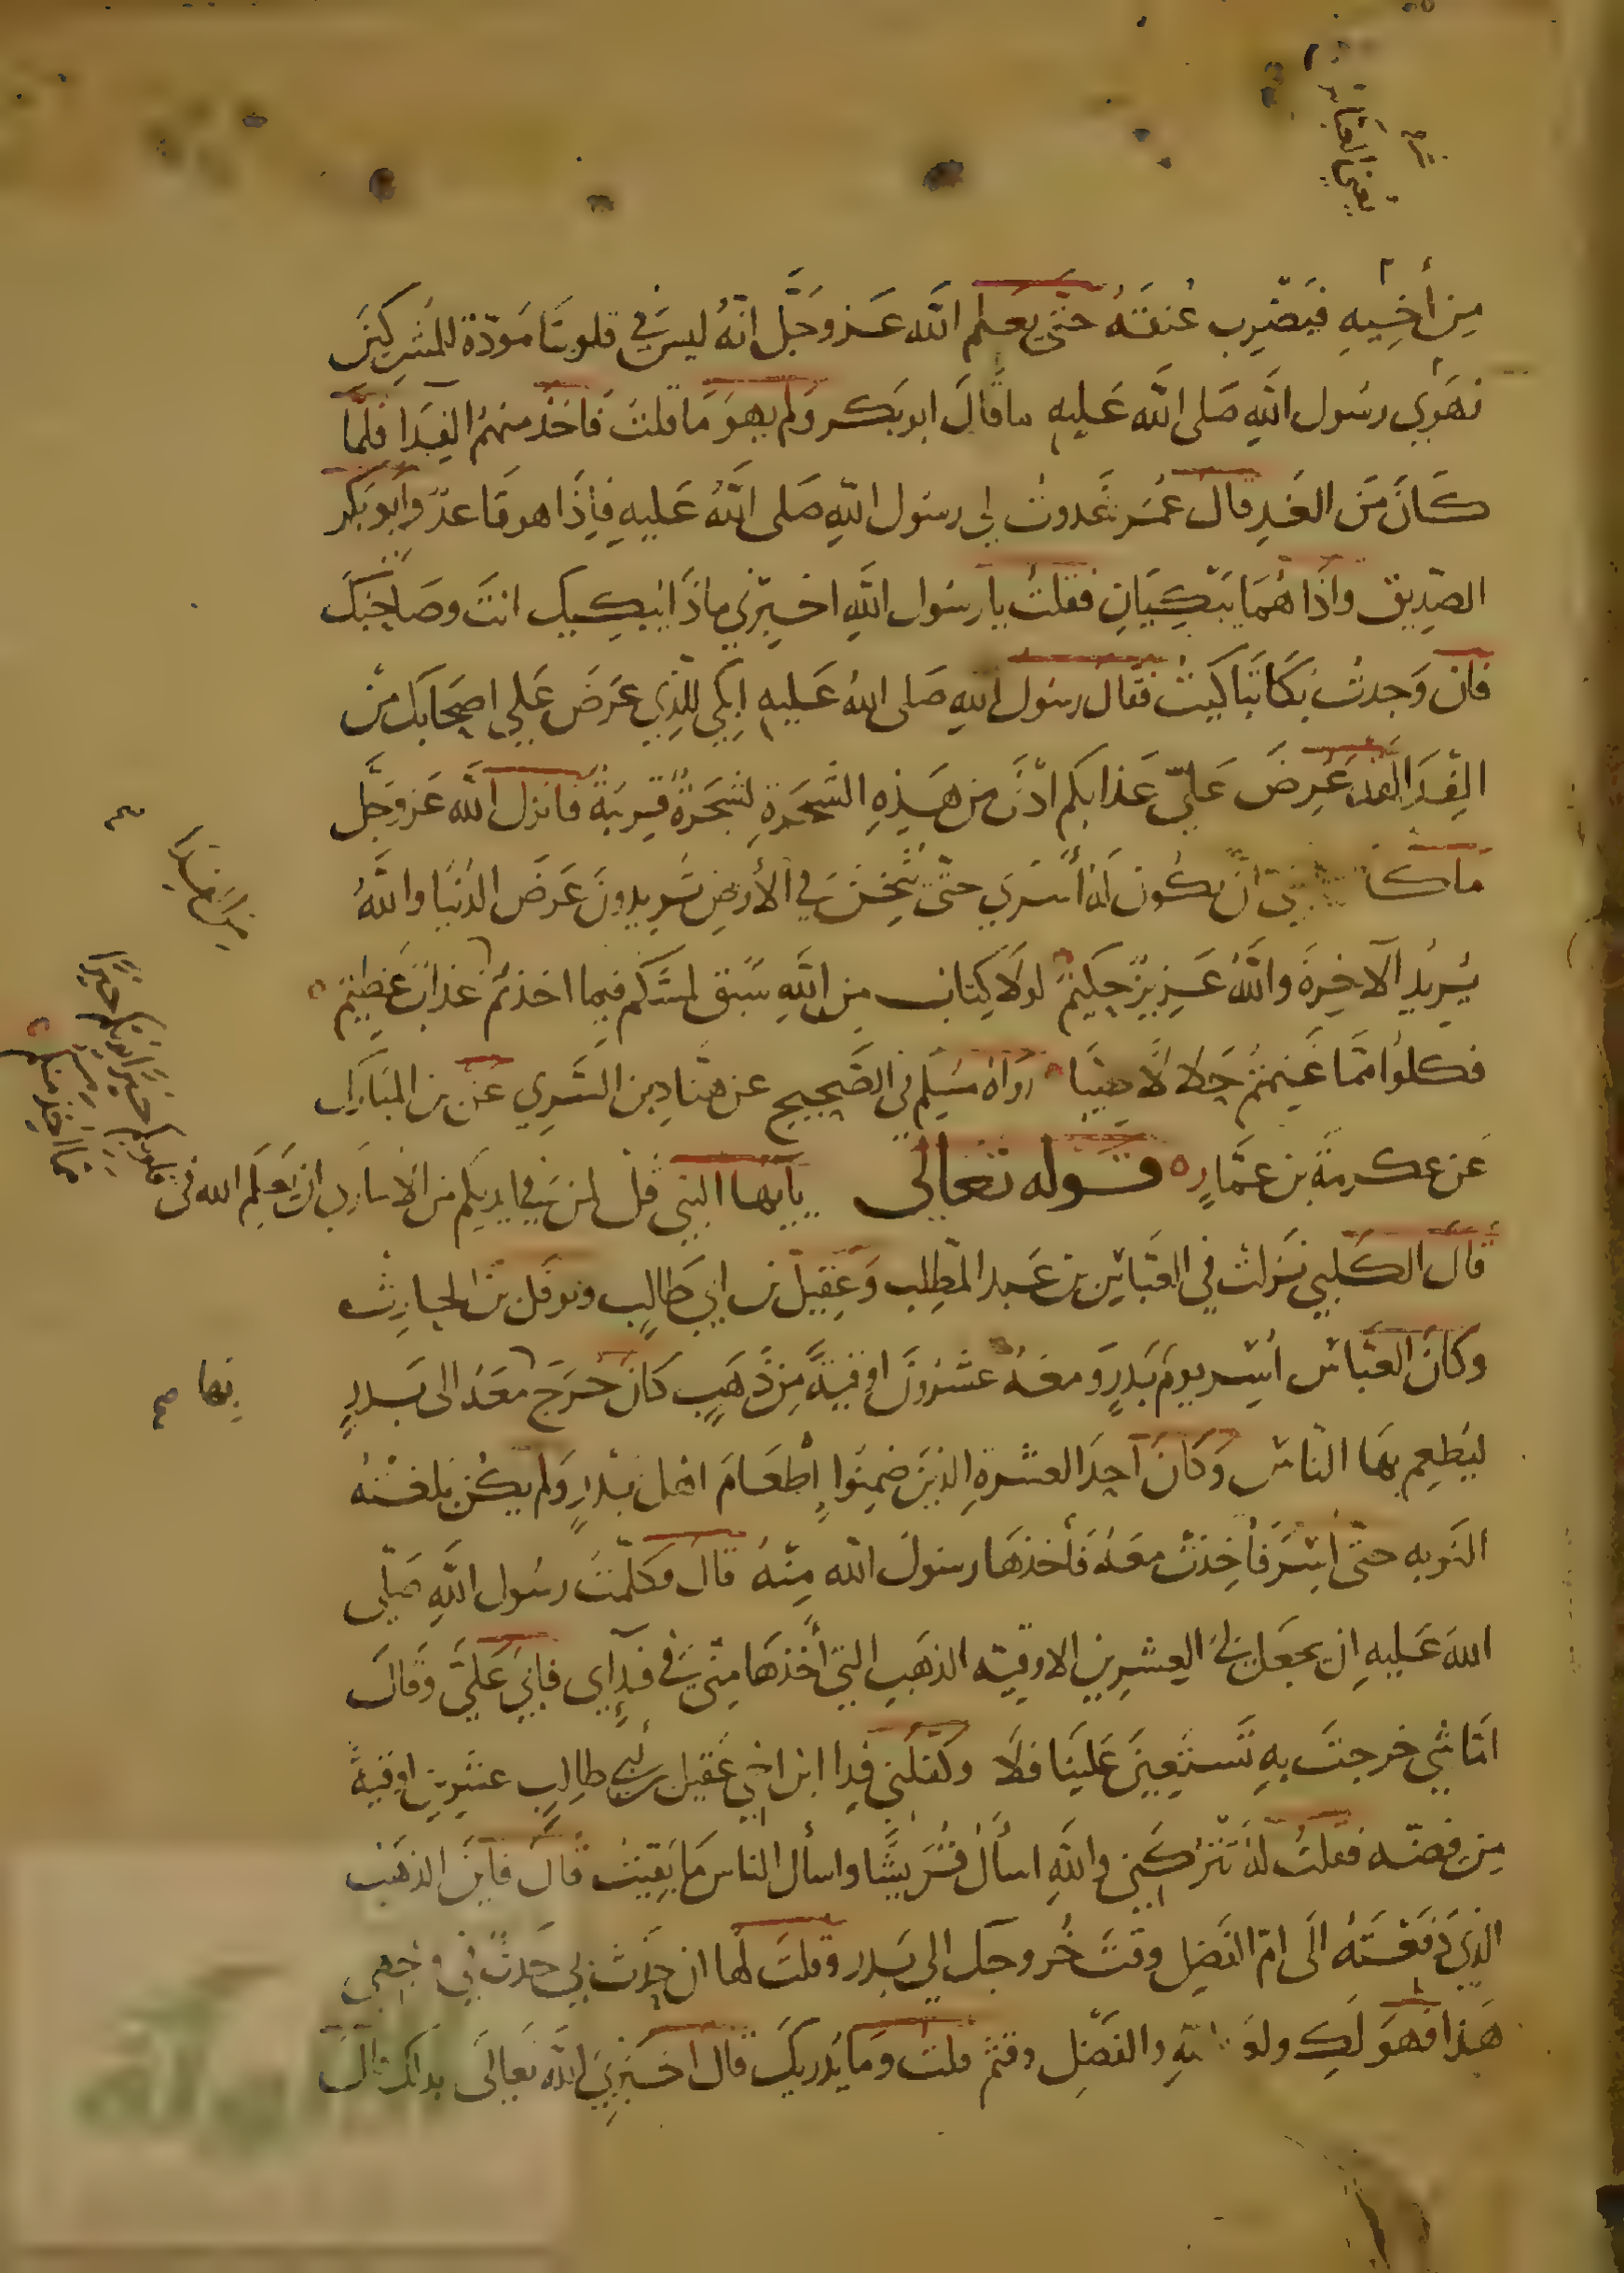 من أخيه فيضرب عنقه حتى يعلم الله عز وجل انه ليس في قلوبنا مودة للمشركين
فهوي رسول الله صلى الله عليه ما قال ابو بكر ولم يهو ما قلت فاخذ منهم الفدا فلما
كان من الغد قال عمر غدوت الي رسول الله صلى الله عليه فإذا هو قاعد وابو بكر
الصديق واذا هما يبكيان فقلت يا رسول الله اخبرني ماذا يبكيك انت وصاحبك
فان وجدت بكا بكيت فقال رسول الله صلى الله عليه ابكي للذي عرض علي اصحابك من
الفدا لقد عرض علي عذابكم ادنى من هذه الشجرة لشجرة قريبة فانزل الله عز وجل
ما كان لنبي ان يكون له أسرى حتى يثخن في الأرض تريدون عرض الدنيا والله
يريد الآخرة والله عزيز حكيم لولا كتاب من الله سبق لمسكم فيما اخذتم عذاب عظيم
فكلوا مما غنمتم حلالا طيبا رواه مسلم في الصحيح عن هناد بن السري عن بن المبارك
عن عكرمة بن عمار قوله تعالى يا يها النبي قل لمن في ايديكم من الاسارى ان يعلم الله في
قلوبكم خيرا يوتكم خيرا
مما اخذ منكم
قال الكلبي نزلت في العباس بن عبد المطلب وعقيل بن ابي طالب ونوفل بن الحارث
وكان العباس أسر يوم بدر ومعه عشرون اوقية من ذهب كان خرج معه الى بدر
بها صح
ليطعم بها الناس وكان احد العشرة الذين ضمنوا إطعام اهل بدر ولم يكن بلغته
النوبه حتى أسر فأخذت معه فأخذها رسول الله منه قال فكلمت رسول الله صلى
الله عليه ان يجعل لي العشرين الاوقيه الذهب التي أخذها مني في فدآي فابى علي وقال
اما شي خرجت به تستعين علينا فلا وكلفني فدا ابن اخي عقيل بن ابي طالب عشرين اوقية
من فضه فقلت له تتركني والله اسأل قريشا واسأل الناس ما بقيت قال فاين الذهب
الذي دفعته الى ام الفضل وقت خروجك الى بدر وقلت لها ان حدث بي حدث في وجهي
هذا فهو لك ولعبد الله والفضل وقثم قلت وما يدريك قال اخبرني الله تعالى بذلك قال